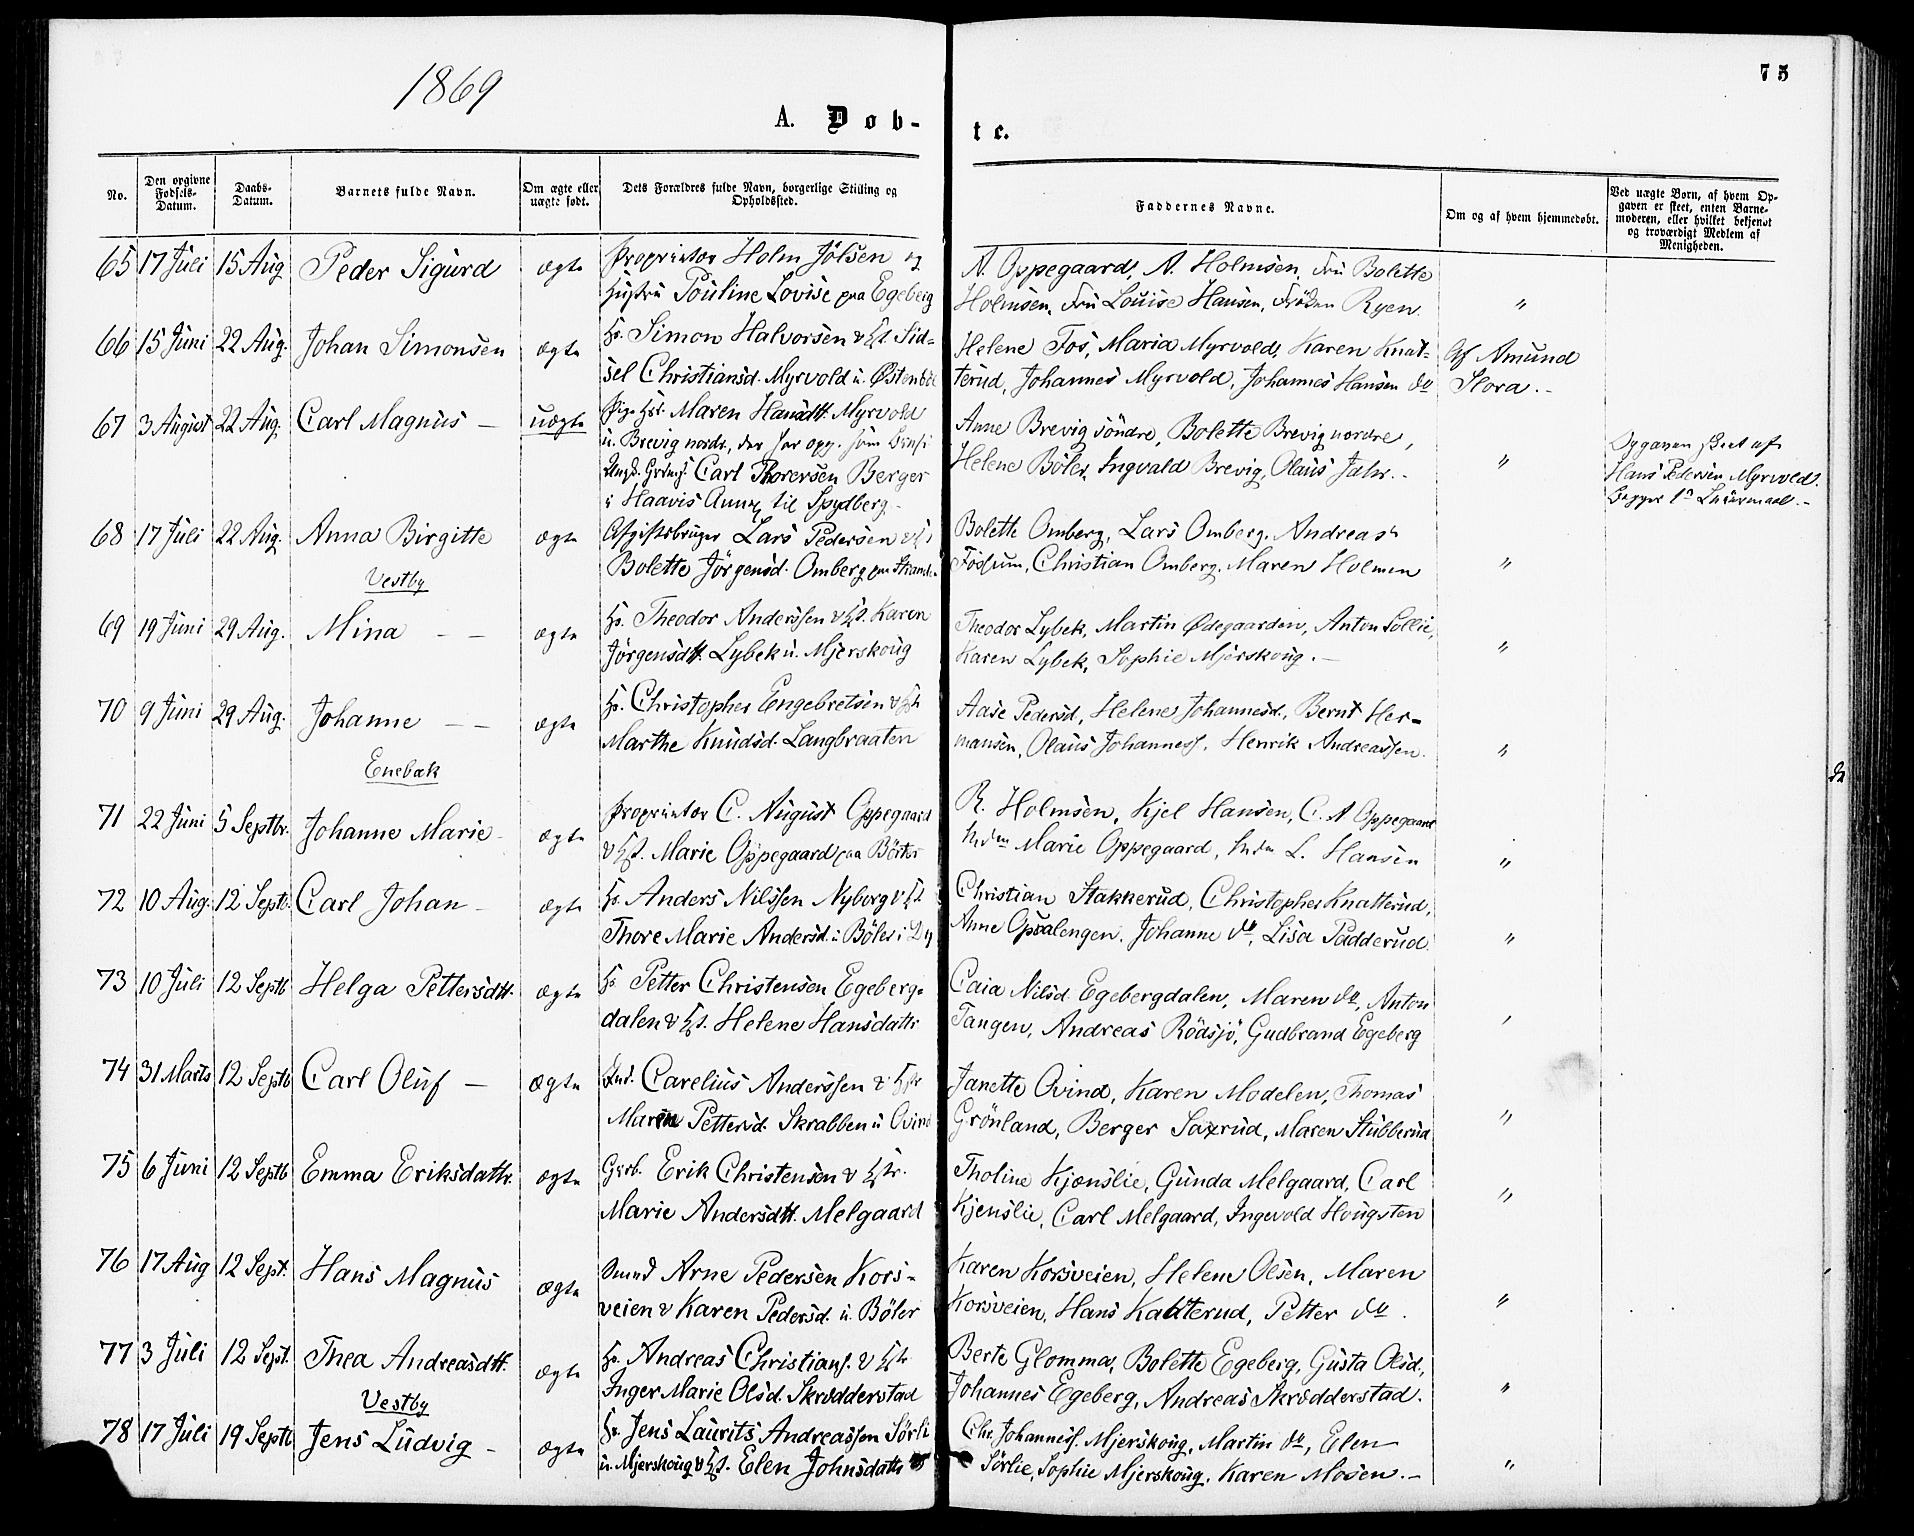 1869
75
A. Døb-
te.
No.
Den opgivne Fødsels-Datum.
Daabs-Datum.
Barnets fulde Navn.
Om ægte eller uægte født.
Dets Forældres fulde Navn, borgerlige Stilling og Opholdssted.
Faddernes Navne.
Om og af hvem hjemmedøbt.
Ved uægte Børn, af hvem Opgaven er skeet, enten Barnemoderen, eller hvilket bekjendt og troværdigt Medlem af Menigheden.
65 17 Juli 15 Aug Peder Sigurd ægte Proprietær Holm Jölsen og A. Oppegaard, A. Holmsen, Fru Bolette
Hustru Pouline Lovise paa Egeberg Holmsen, Fru Louise Hansen, Fröken Ryen "
66 15 Juni 22 Aug. Johan Simonsen ægte Hs. Simon Halvorsen & Hst. Sid= Helene Fos, Maria Myrvold, Karen Knat= Af Amund
sel Christiansd. Myrvold u. Østenböl terud, Johannes Myrvold, Johannes Hansen do Slora.-
67 3 August 22 Aug. Carl Magnus - uægte Pige Maren Hansdtt. Myrvold Anne Brevig söndre, Bolette Brevig nordre,
u. Brevig nordr, der har opg. som Opgaven skeet af
Carl Thorersen Berger Helene Böler, Ingvald Brevig, Olaus Jahr.- " Hans Pedersen Myrvold.
i Haavis Annex til Spydberg.-
68 17 Juli 22 Aug. Anna Birgitte ægte Afgiftsbruger Lars Pedersen & Bolette Omberg, Lars Omberg, Andreas
Vestby Bolette Jörgensd. Omberg Fossum, Christian Omberg, Maren Holmen "
69 19 Juni 29 Aug. Mina - - ægte Hs. Theodor Anderssen & Hst. Karen Theodor Lybek, Martin Ødegaarden, Anton Sollie,
Jörgensdtt. Lybek u. Mjerskoug Karen Lybek, Sophie Mjerskoug.- "
70 9 Juni 29 Aug. Johanne - - ægte Hs. Christopher Engebretsen & Hst Aase Pedersd, Helene Johannesd., Bernt Her-
Enebak Marthe Knudsd. Langbraaten mansen, Olaus Johanness, Henrik Andreassen. "
71 22 Juni 5 Septbr. Johanne Marie - ægte Proprietær C. August Oppegaard R. Holmsen, Kjel Hansen, C. A Oppegaard
& Hst. Marie Oppegaard paa Börter Marie Oppegaard, L. Hansen "
72 10 Aug. 12 Septb. Carl Johan - ægte Hs. Anders Nilssen Nyborg & Hst. Christian Stakkerud, Christopher Knatterud,
Thore Marie Andersd. u. Böler i Anne Opsalengen, Johanne do, Lisa Padderud "
73 10 Juli 12 Septb Helga Pettersdtt. ægte Hs Petter Christensen Egeberg= Caia Nilsd. Egebergdalen, Maren do, Anton
dalen & Hst. Helene Hansdattr Tangen, Andreas Rödsjö, Gudbrand Egeberg
74 31 Marts 12 Septb Carl Oluf - ægte Ind. Carelius Anderssen & Hstr Janette Ovind, Karen Modelen, Thomas
Maren Pettersd. Skrabben u Ovind Grönland, Berger Saxrud, Maren Stubberud "
75 6 Juni 12 Septb Emma Eriksdattr. ægte Grb. Erik Christensen & Hstr. Tholine Kjænslie, Gunda Melgaard, Carl
Marie Andersdtt. Melgaard Kjenslie, Carl Melgaard, Ingevold Hougsten "
76 17 Aug 12 Sept. Hans Magnus ægte Smed Arne Pedersen Kors- Karen Korsveien, Helene Olsen, Maren
veien & Karen Pedersd. u. Böler Korsveien, Hans Katterud, Petter do. "
77 3 Juli 12 Sept. Thea Andreasdtt. ægte Hs. Andreas Christians. & Hstr Berte Glomma, Bolette Egeberg, Gusta Olsd.,
Vestby Inger Marie Olsd. Skrædderstad Johannes Egeberg, Andreas Skrædderstad. "
78 17 Juli 19 Septb Jens Ludvig - ægte Hs. Jens Laurits Andreassen Sörli Chr. Johanness. Mjerskoug, Martin do, Elen
u. Mjerskoug & Hst. Elen Johnsdattr Sörlie, Sophie Mjerskoug, Karen Mosen.- "